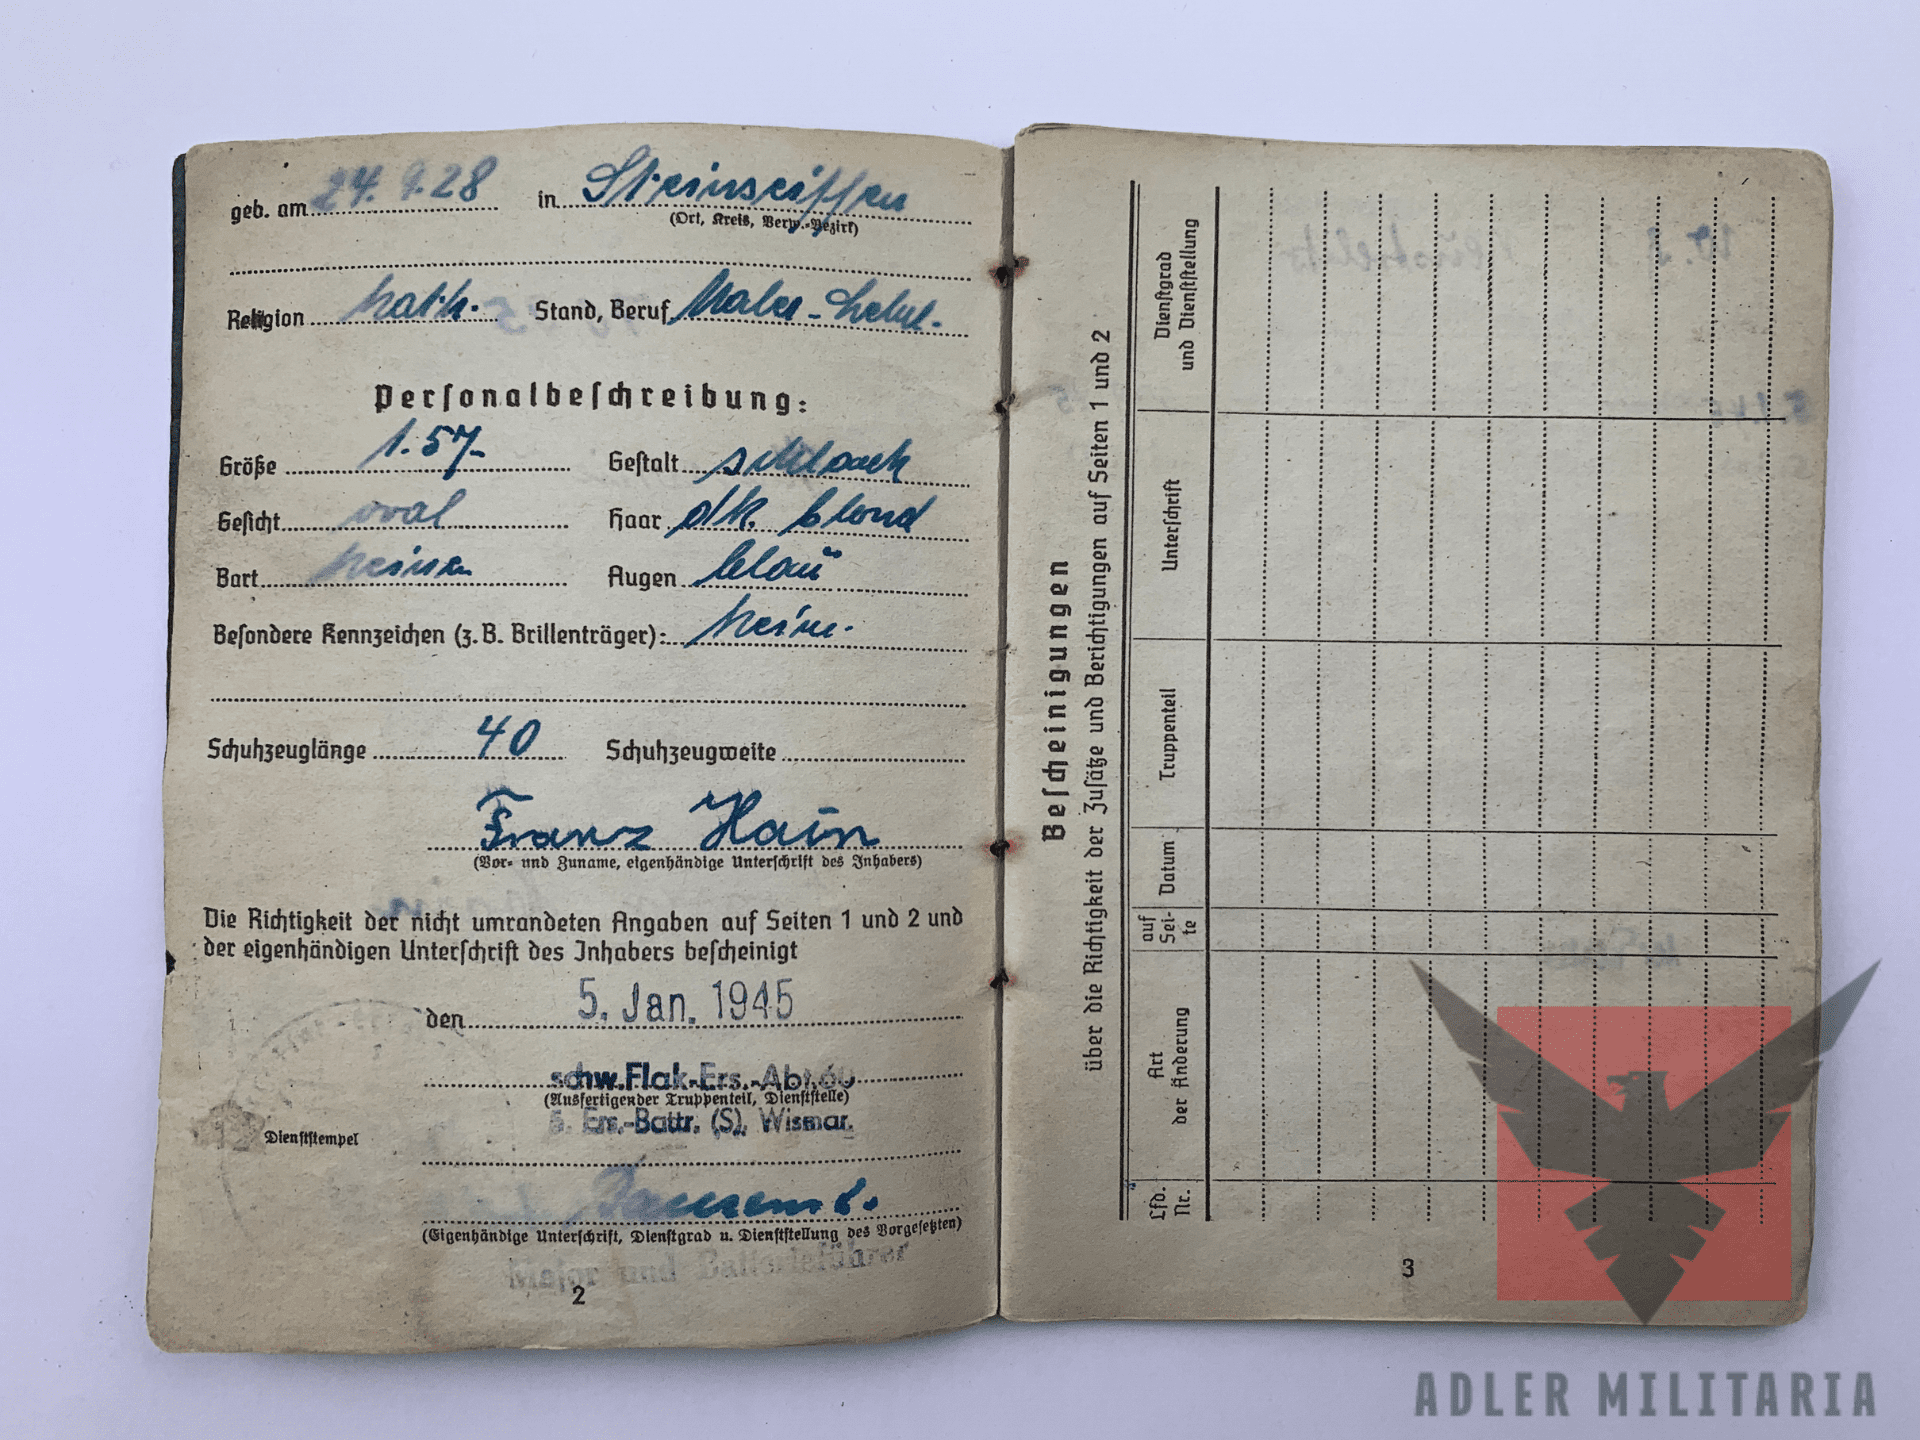 geb. am 24. 9. 28 in Steinseiffen
(Ort, Kreis, Verw.-Bezirk)
Religion kath. Stand, Beruf Maler-Lehrl.
Personalbeschreibung:
Größe 1.57- Gestalt schlank
Gesicht oval Haar dk. blond
Bart keinen Augen blau
Besondere Kennzeichen (z. B. Brillenträger): keine.
Schuhzeuglänge 40 Schuhzeugweite
Franz Hain
(Vor- und Zuname, eigenhändige Unterschrift des Inhabers)
Die Richtigkeit der nicht umrandeten Angaben auf Seiten 1 und 2 und
der eigenhändigen Unterschrift des Inhabers bescheinigt
den 5. Jan. 1945
schw. Flak-Ers.-Abt. 60
(Ausfertigender Truppenteil, Dienststelle)
5. Ers.-Battr. (S), Wismar.
Dienststempel
(Eigenhändige Unterschrift, Dienstgrad u. Dienststellung des Vorgesetzten)
Major und Batterieführer
2
Bescheinigungen
über die Richtigkeit der Zusätze und Berichtigungen auf Seiten 1 und 2
Lfd. Nr.
Art der Änderung
auf Sei-te
Datum
Truppenteil
Unterschrift
Dienstgrad und Dienststellung
3
ADLER MILITARIA